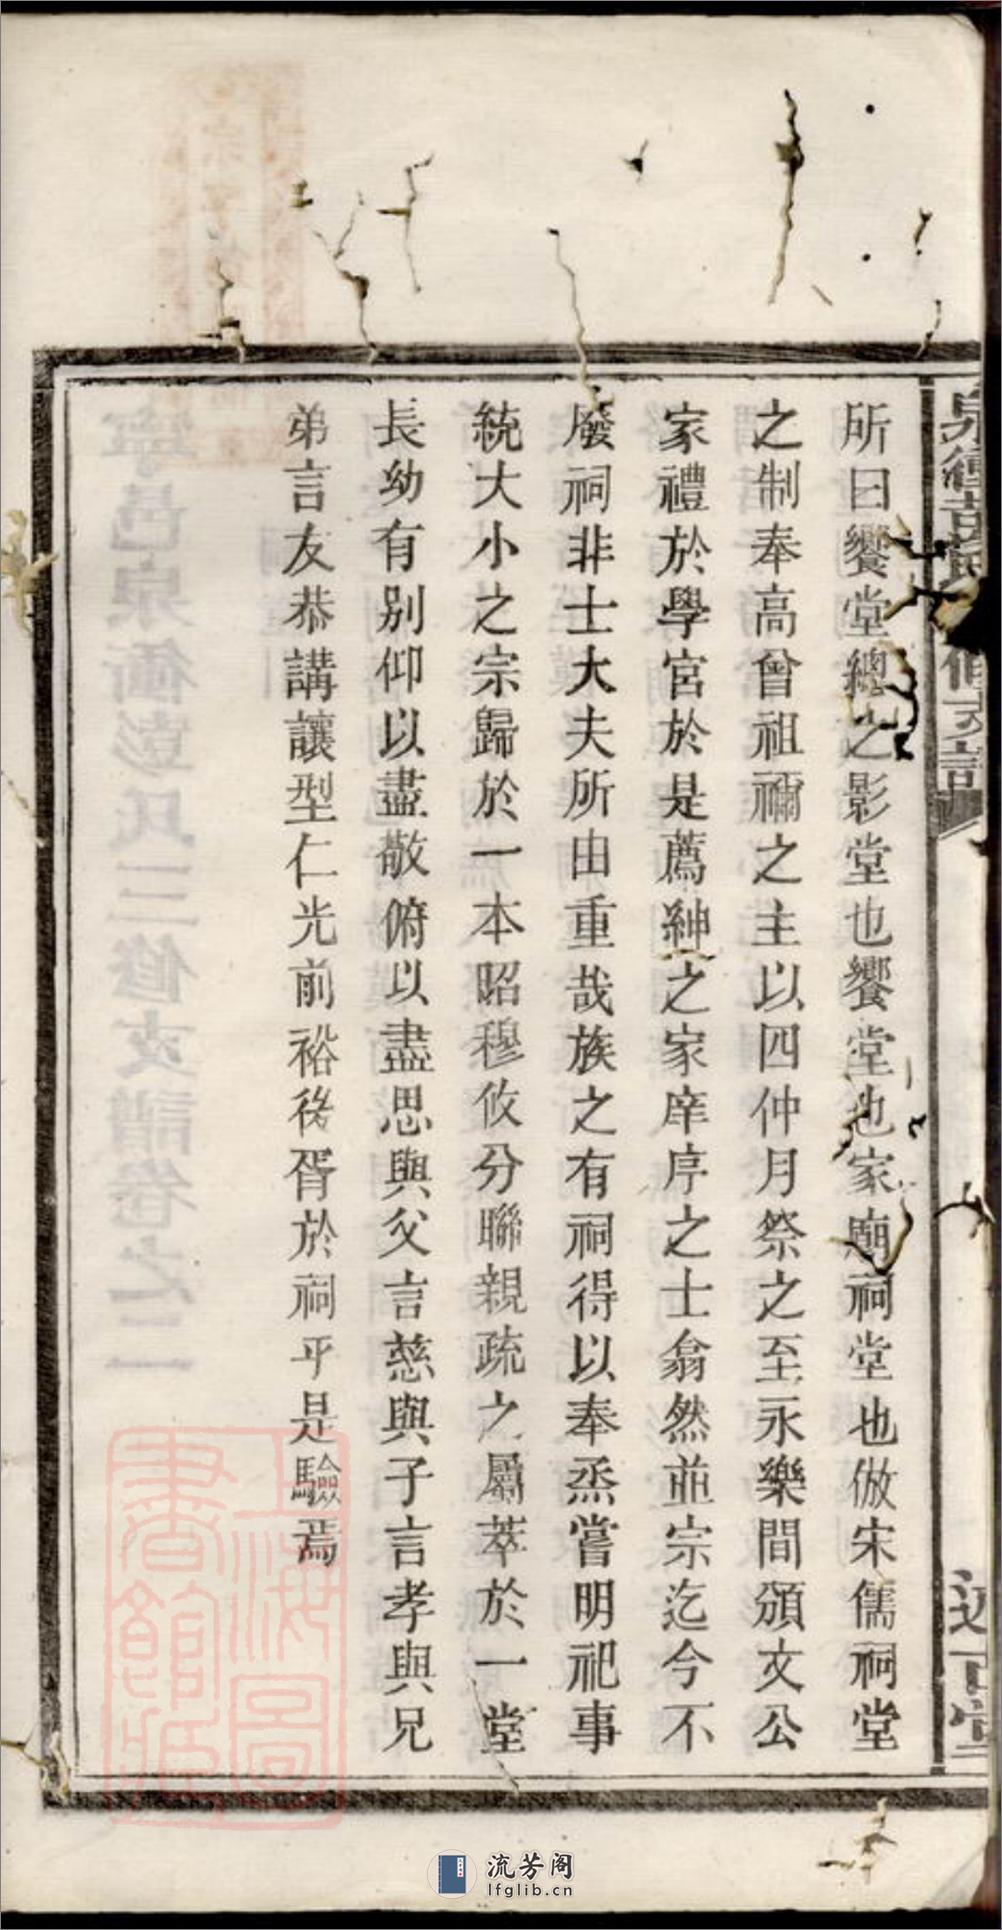 所曰饗堂總之影堂也饗堂也家廟祠堂也倣宋儒祠堂
之制奉高曾祖禰之主以四仲月祭之至永樂間頒文公
家禮於學宮於是薦紳之家庠序之士翕然並宗迄今不
廢祠非士大夫所由重哉族之有祠得以奉烝嘗明祀事
統大小之宗歸於一本昭穆攸分聯親疏之屬萃於一堂
長幼有別仰以盡敬俯以盡思與父言慈與子言孝與兄
弟言友恭講讓型仁光前裕後胥於祠乎是驗焉
上海圖書館藏
流芳阁
lfglib.cn